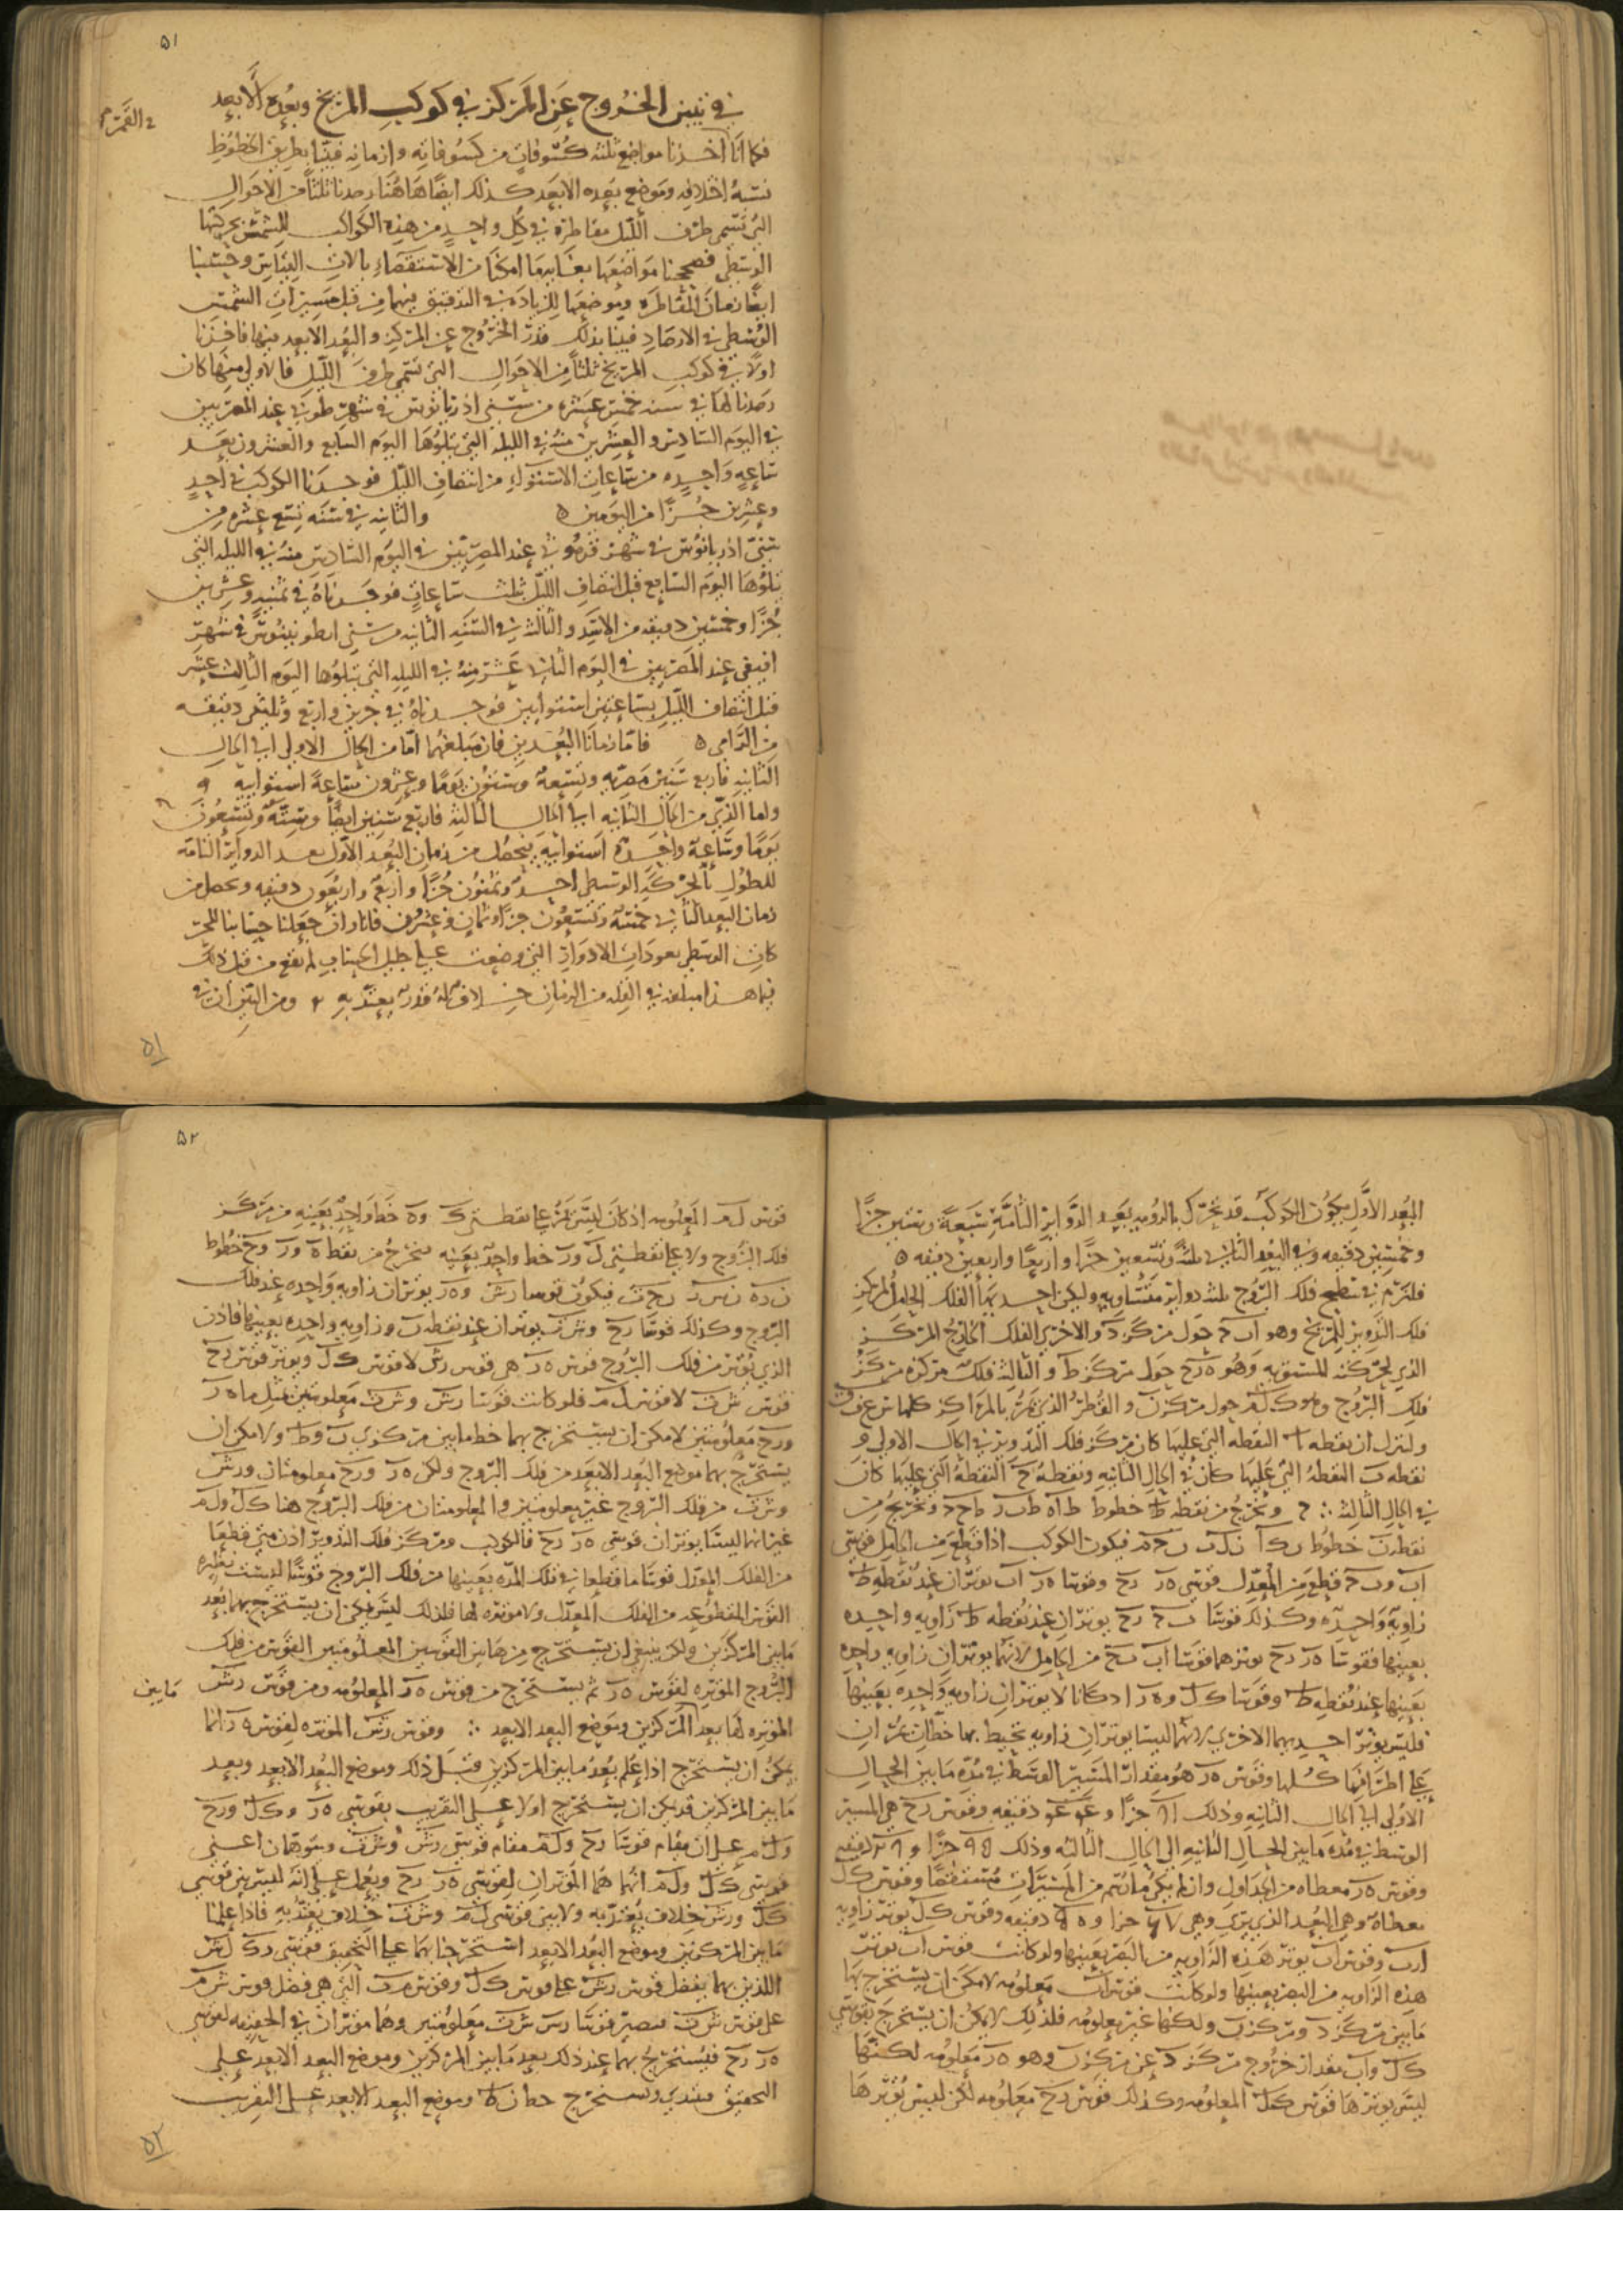 ٥١
في تبين الخروج عن المركز في كوكب المريخ وبعده الأبعد
في القمر
فكما أنا أخذنا مواضع ثلثة كسوفات من كسوفاته وأزمانه فبينا بطريق الخطوط
نسبة اختلافه وموضع بعده الابعد كذلك ايضا هاهنا رصدنا ثلثا من الاحوال
التي تسمى طرفي الليل مقاطرة في كل واحد من هذه الكواكب للشمس بحركتها
الوسطى فصححنا مواضعها بغاية ما امكنا من الاستقصاء بالات القياس وحسبنا
ايضا زمان المقاطرة وموضعها للزيادة في التدقيق فيهما من قبل مسيرات الشمس
الوسطى في الارصاد فبينا بذلك قدر الخروج عن المركز والبعد الابعد فيها فاخذنا
اولا في كوكب المريخ ثلثا من الاحوال التي تسمى طرفي الليل فالاولى منها كان
رصدنا لها في سنة خمس عشرة من سني ادريانوس في شهر طوبي عند المصريين
في اليوم السادس والعشرين منه في الليلة التي تتلوها اليوم السابع والعشرون بعد
ساعة واحدة من ساعات الاستواء من انتصاف الليل فوجدنا الكوكب في احد
وعشرين جزءا من التومين والثانية في سنة تسع عشرة من
سني ادريانوس في شهر فرموثي عند المصريين في اليوم السادس منه في الليلة التي
تتلوها اليوم السابع قبل انتصاف الليل بثلث ساعات فوجدناه في ثمنية وعشرين
جزءا وخمسين دقيقه من الاسد والثالث في السنة الثانية من سني انطونينوس في شهر
افيفي عند المصريين في اليوم الثاني عشر منه في الليلة التي تتلوها اليوم الثالث عشر
قبل انتصاف الليل بساعتين استوائيين فوجدناه في جزئين واربع وثلثين دقيقه
من الرامي فاما زمانا البعدين فان مبلغهما اما من الحال الاولى الى الحال
الثانية فاربع سنين مصرية وتسعة وستون يوما وعشرون ساعة استوائية
واما الذي من الحال الثانية الى الحال الثالثة فاربع سنين ايضا وستة وتسعون
يوما وساعة واحدة استوائية فيحصل من زمان البعد الاول بعد الدوائر التامة
للطول بالحركة الوسطى احد وثمنون جزءا واربع واربعون دقيقه ويحصل من
زمان البعد الثاني خمسة وتسعون جزءا وثمان وعشرون فانا وان جعلنا حسابنا للحر
كات الوسطى بعودات الادوار التي وضعت على جليل الحساب لم يقع من قبل ذلك
فيما هذا مبلغه في القلة من الزمان خلاف له قدر يعتد به ومن البين ان في
٥١
البعد الاول يكون الكوكب قد تحرك بالرؤية بعد الدوائر التامة سبعة وستين جزءا
وخمسين دقيقه وفي البعد الثاني ثلثة وتسعين جزءا واربعا واربعين دقيقه
فلنرسم في سطح فلك البروج ثلث دوائر متساوية وليكن احديهما الفلك الحامل لمركز
فلك التدوير للمريخ وهو اب ج حول مركز د والاخرى الفلك الخارج المركز
الذي لحركته المستوية وهو ه ز ح حول مركز ط والثالثة فلك مركزه مركز
فلك البروج وهو ك ل م حول مركز ن والقطر الذي يمر بالمراكز كلها س ع ف ق
ولننزل ان نقطة ا النقطة التي عليها كان مركز فلك التدوير في الحال الاولى و
نقطة ب النقطة التي عليها كان في الحال الثانية ونقطة ج النقطة التي عليها كان
في الحال الثالثة ونخرج من نقطة ط خطوط ط ا ه ط ب ز ط ج ح ونخرج من
نقطة ن خطوط ن ك ا ن ل ب ن ج م فيكون الكوكب اذا قطع من الحامل قوسي
اب وب ج قطع من المعدل قوسي ه ز ز ح وقوسا ه ز اب يوتران عند نقطة ط
زاوية واحدة وكذلك قوسا ب ج ز ح يوتران عند نقطة ط زاوية واحدة
بعينها فقوسا ه ز ز ح يوترهما قوسا اب ب ج من الحامل لانهما يوتران زاوية واحدة
بعينها عند نقطة ط وقوسا ك ل و ه ز اذ كانا لا يوتران زاوية واحدة بعينها
فليس يوتر احديهما الاخرى لانهما ليستا يوتران زاوية تحيط بها خطان يمران
على اطرافها كلها وقوس ه ز هو مقدار المسير الوسط في مدة ما بين الحال
الاولى الى الحال الثانية وذلك جزءا و دقيقه وقوس ز ح هي المسير
الوسط في مدة ما بين الحال الثانية الى الحال الثالثة وذلك جزءا و دقيقه
وقوس ه ز معطاه من الجداول وان لم يكن ما يتم من المسيرات مستقصا وقوس ك ل
معطاة وهي البعد الذي يرى وهي جزءا و دقيقه وقوس ك ل يوتر زاوية
ا ن ب وقوس اب يوتر هذه الزاوية من البصر بعينها ولو كانت قوس اب يوتر
هذه الزاوية من البصر بعينها ولو كانت قوس اب معلومة لامكن ان يستخرج بها
ما بين مركز د ومركز ن ولكنها غير معلومة فلذلك لا يمكن ان يستخرج بقوسي
ك ل واب مقدار خروج مركز د عن مركز ن وهو ه ز معلومة لكنها
ليس يوترها قوس ك ل المعلومة وكذلك قوس ز ح معلومة لكن ليس يوترها
٥٢
قوس ل م المعلومة اذ كان ليس يمر على نقطتي ك و ه خط واحد بعينه من مركز
فلك البروج ولا على نقطتي ل و ز خط واحد بعينه فنخرج من نقط ه و ز و ح خطوط
ن ر ه ن ش ز ن ت ح فيكون قوسا ر ش و ه ز يوتران زاوية واحدة عند فلك
البروج وكذلك قوسا ز ح و ش ت يوتران عند نقطة ن زاوية واحدة بعينها فاذن
الذي يوتر من فلك البروج قوس ه ز هي قوس ر ش لا قوس ك ل ويوتر قوس ز ح
قوس ش ت لا قوس ل م فلو كانت قوسا ر ش و ش ت معلومتين مثل ما ه ز
و ز ح معلومتين لامكن ان يستخرج بهما خط ما بين مركزي ن و ط ولامكن ان
يستخرج بهما موضع البعد الابعد من فلك البروج ولكن ه ز و ز ح معلومتان و ر ش
و ش ت من فلك البروج غير معلومتين والمعلومتان من فلك البروج هنا ك ل و ل م
غير انهما ليستا يوتران قوسي ه ز ز ح فالكوكب ومركز فلك التدوير اذن متى قطعا
من الفلك المعدل قوسا ما قطعا في تلك المدة بعينها من فلك البروج قوسا ليست نظيرة
القوس المقطوعة من الفلك المعدل ولا موترة لها فلذلك ليس يمكن ان يستخرج بهما بعد
ما بين المركزين ولكن ينبغي ان يستخرج من هاتين القوسين المعلومتين القوس من فلك
البروج الموترة لقوس ه ز ثم يستخرج من قوس ه ز المعلومة ومن قوس ر ش
ما بين
الموترة لها بعد المركزين وموضع البعد الابعد وقوس ر ش الموترة لقوس ه ز انما
يمكن ان يستخرج اذا علم بعد ما بين المركزين قبل ذلك وموضع البعد الابعد وبعد
ما بين المركزين قد يمكن ان يستخرج اولا على التقريب بقوسي ه ز و ك ل و ز ح
و ل م على ان مقام قوسا ك ل و ل م مقام قوسي ر ش و ش ت ويتوهمان اعني
قوسي ك ل و ل م انهما هما الموتران لقوسي ه ز ز ح ويعمل على انه ليس بين قوسي
ك ل و ر ش خلاف يعتد به ولا بين قوسي ل م و ش ت خلاف يعتد به فاذا علمنا
ما بين المركزين وموضع البعد الابعد استخرجنا بهما على التحقيق قوسي ر ك ل ش
اللذين بهما يفضل قوس ر ش على قوس ك ل وقوس م ت التي هي فضل قوس ش م
على قوس ش ت فتصير قوسا ر ش ش ت معلومتين وهما موتران في الحقيقة لقوسي
ه ز ز ح فيستخرج بهما عند ذلك بعد ما بين المركزين وموضع البعد الابعد على
التحقيق فنبتدئ ونستخرج خط ن ط وموضع البعد الابعد على التقريب
٥٢